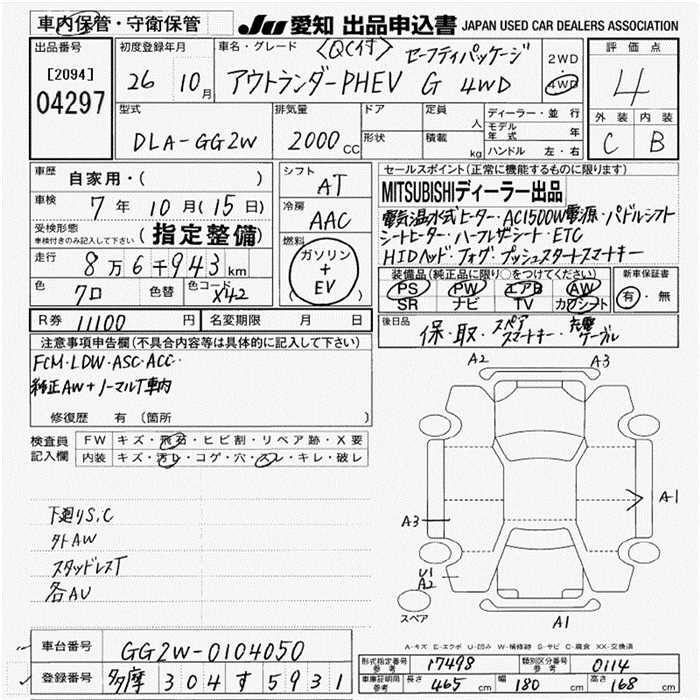 車内保管・守衛保管
JU 愛知 出品申込書 JAPAN USED CAR DEALERS ASSOCIATION
出品番号
[2094]
04297
初度登録年月
26 10月
車名・グレード 〈QC付〉 セーフティパッケージ
アウトランダーPHEV G 4WD
2WD
4WD
評価点
4
外装 内装
C B
型式
DLA-GG2W
排気量
2000cc
ドア
形状
定員 人
積載 kg
ディーラー・並行
モデル年式 年
ハンドル 左・右
車歴
自家用・( )
車検
7年 10月(15日)
受検形態
車検付きのみ記入して下さい
(指定整備)
走行
8万6千943km
色 クロ 色替 色コード X42
シフト
AT
冷房
AAC
燃料
ガソリン
+
EV
セールスポイント(正常に機能するものに限ります)
MITSUBISHIディーラー出品
電気温水式ヒーター・AC1500W電源・パドルシフト
シートヒーター・ハーフレザーシート・ETC
HIDヘッド・フォグ・プッシュスタートスマートキー
装備品(純正品に限り○をつけてください)
PS PW エアB AW
SR ナビ TV カワシート
新車保証書
有・無
R券 11100円
名変期限 月 日
後日品
保・取・スペアスマートキー・充電ケーブル
注意事項申告欄(不具合内容等は具体的に記入して下さい)
FCM・LDW・ASC・ACC・
純正AW+ノーマルT車内
修復歴 有(箇所
検査員
記入欄
FW キズ・飛石・ヒビ割・リペア跡・X要
内装 キズ・汚レ・コゲ・穴・スレ・キレ・破レ
下廻りS,C
外AW
スタッドレスT
各AU
A2
A3
A-1
A3
U1
A2
A1
スペア
A-キズ E-エクボ U-凹み W-補修跡 S-サビ C-腐食 XX-交換済
車台番号 GG2W-0104050
登録番号 多摩 304 す 5931
形式指定番号
参考
17498
類別区分番号
参考
0114
車庫証明用
参考
長さ 465cm 幅 180cm 高さ 168cm